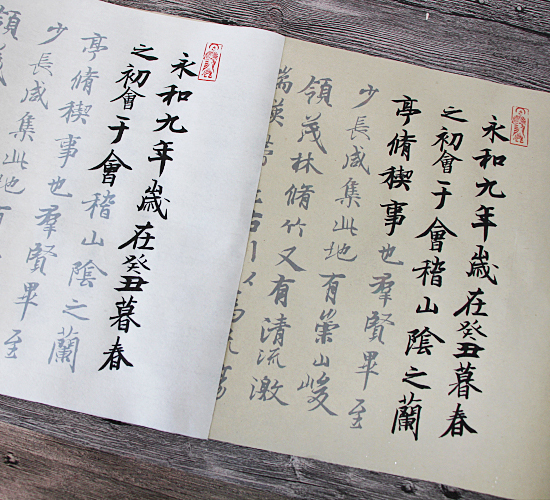 永和九年歲在癸丑暮春
之初會于會稽山陰之蘭
亭脩稧事也羣賢畢至
少長咸集此地有崇山峻
領茂林脩竹又有清流激
湍暎帶
永和九年歲在癸丑暮春
之初會于會稽山陰之蘭
亭脩稧事也羣賢畢至
少長咸集此地有
領茂